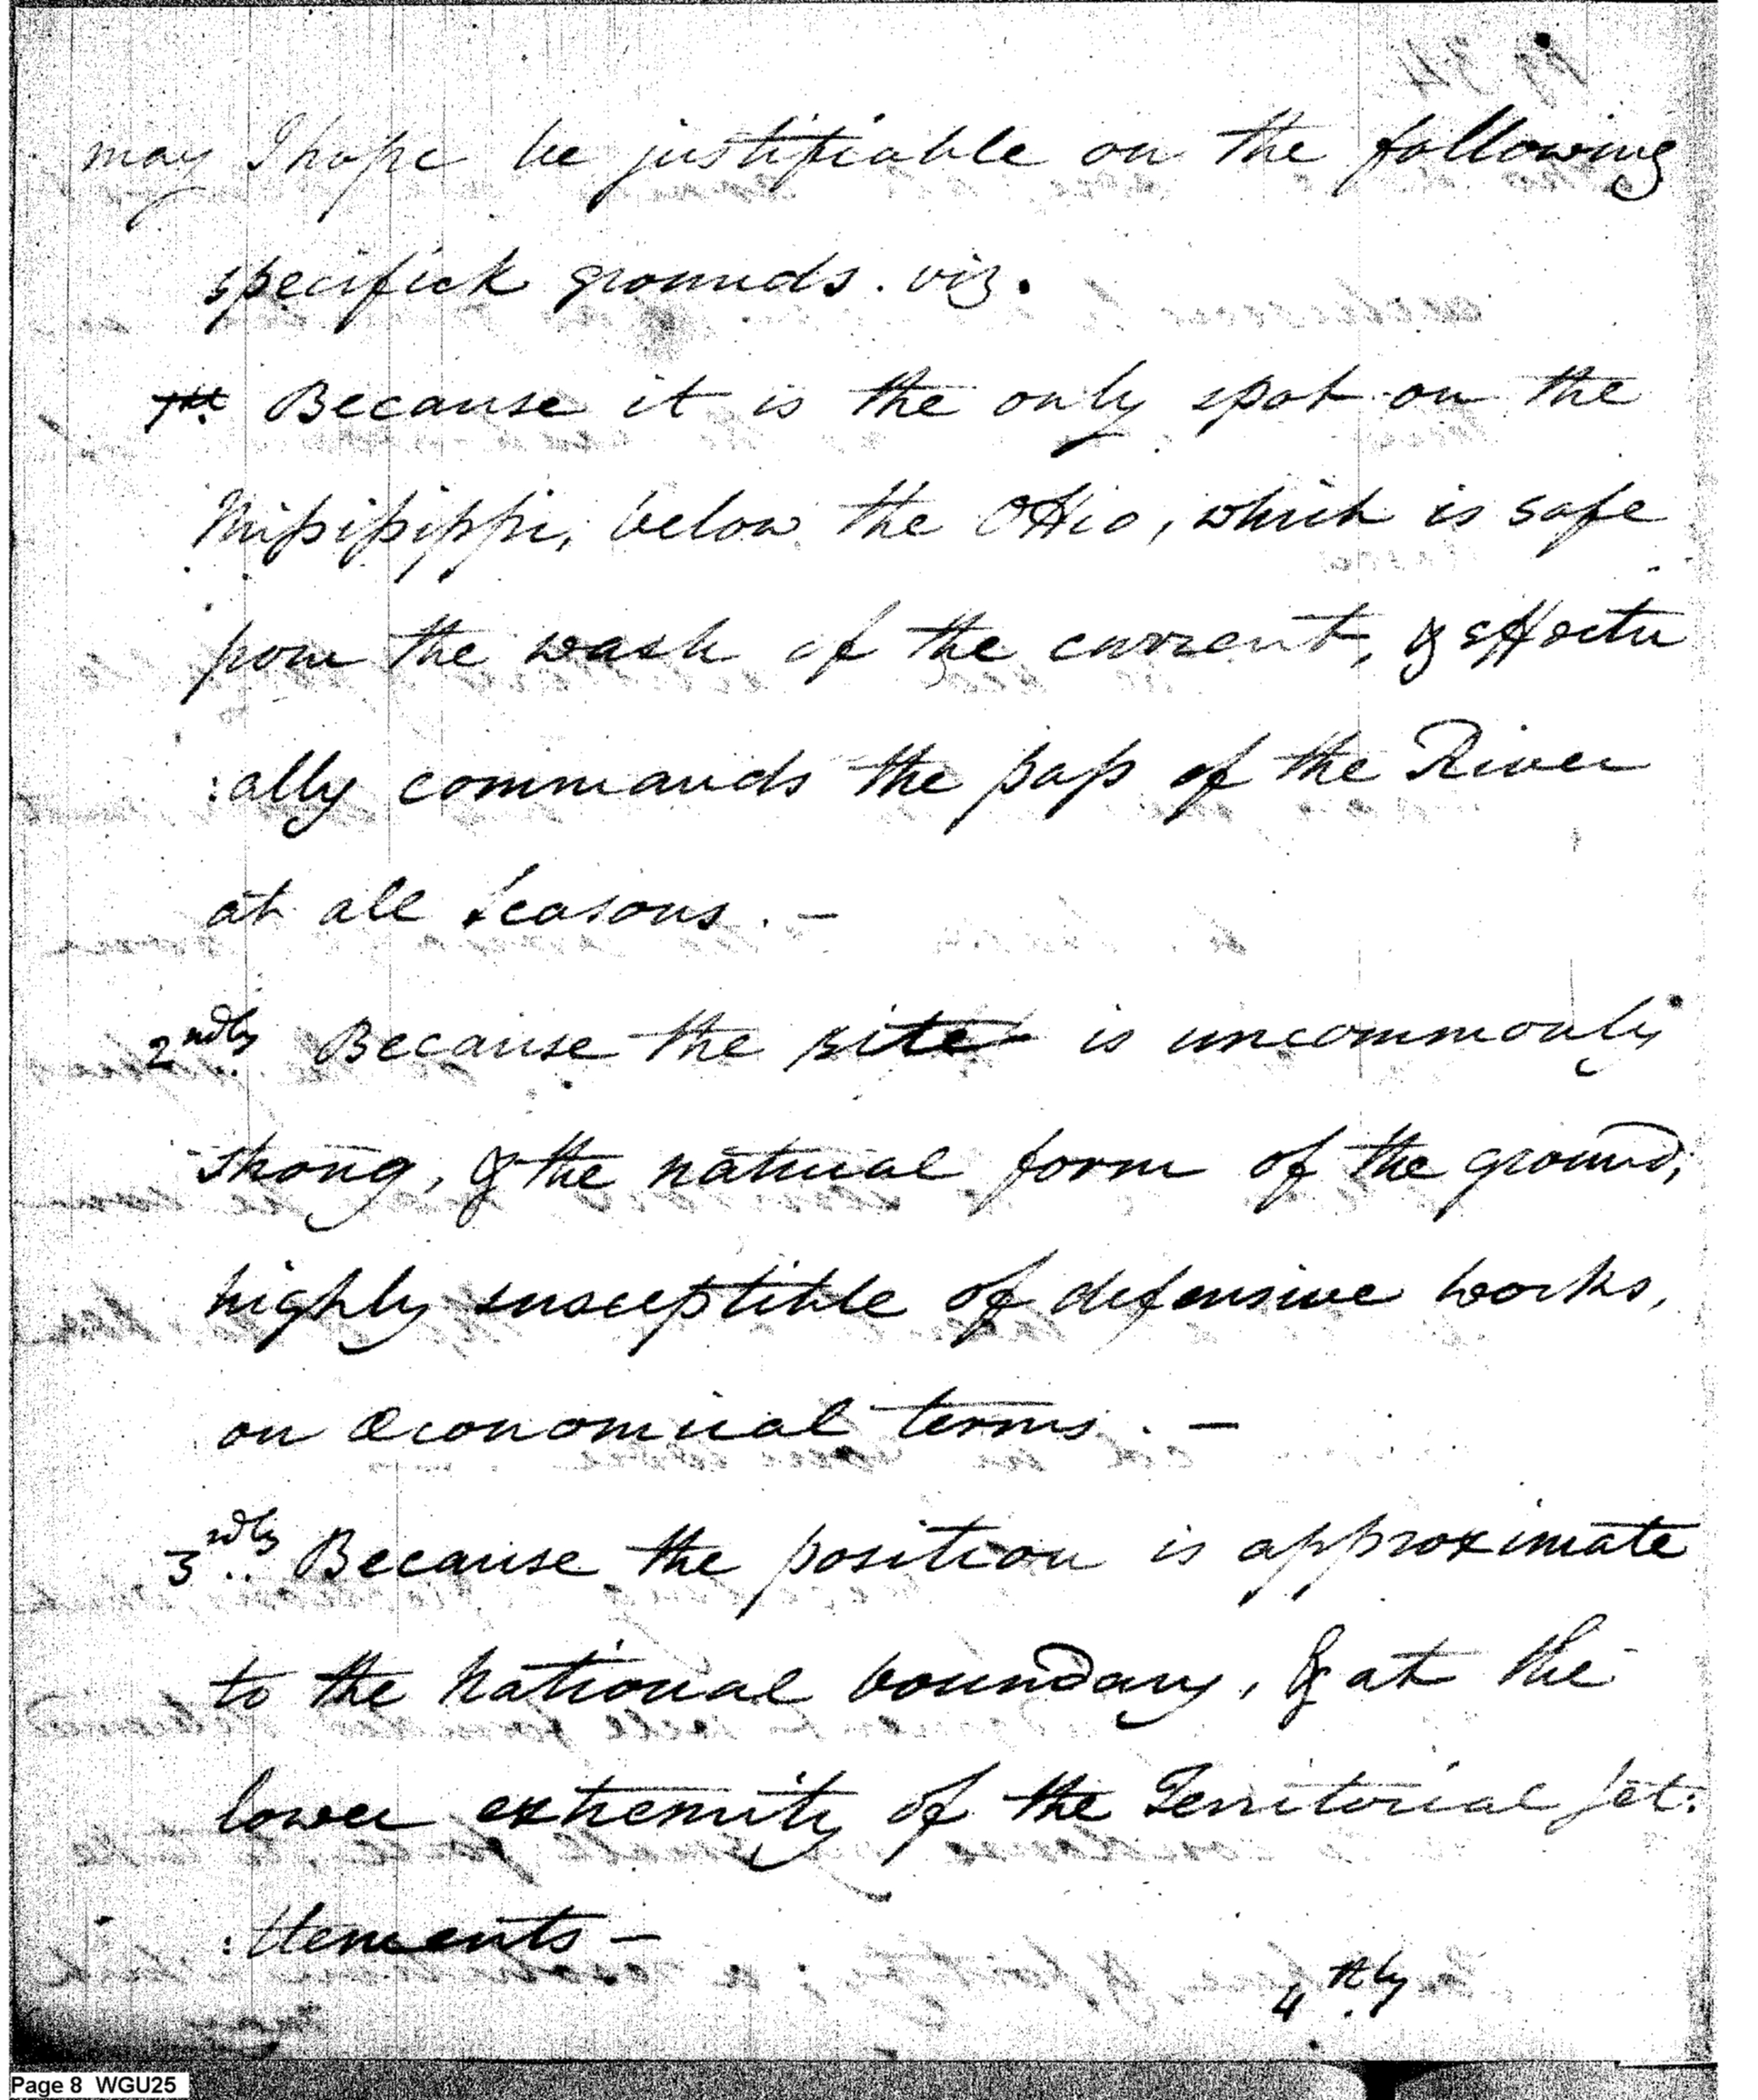 may I hope be justifiable on the following
specifick grounds. viz.
1st. Because it is the only spot on the
Missisippi, below the OHio, which is safe
from the wash of the current, & effectu
:ally commands the pass of the River
at all Seasons. —
2ndly. Because the site is uncommonly
strong, & the natural form of the ground,
highly susceptible of defensive works,
on Œconomical terms. —
3rdly.. Because the position is approximate
to the National boundary, & at the
lower extremity of the Territorial Set:
:tlements —
4thly
Page 8 WGU25